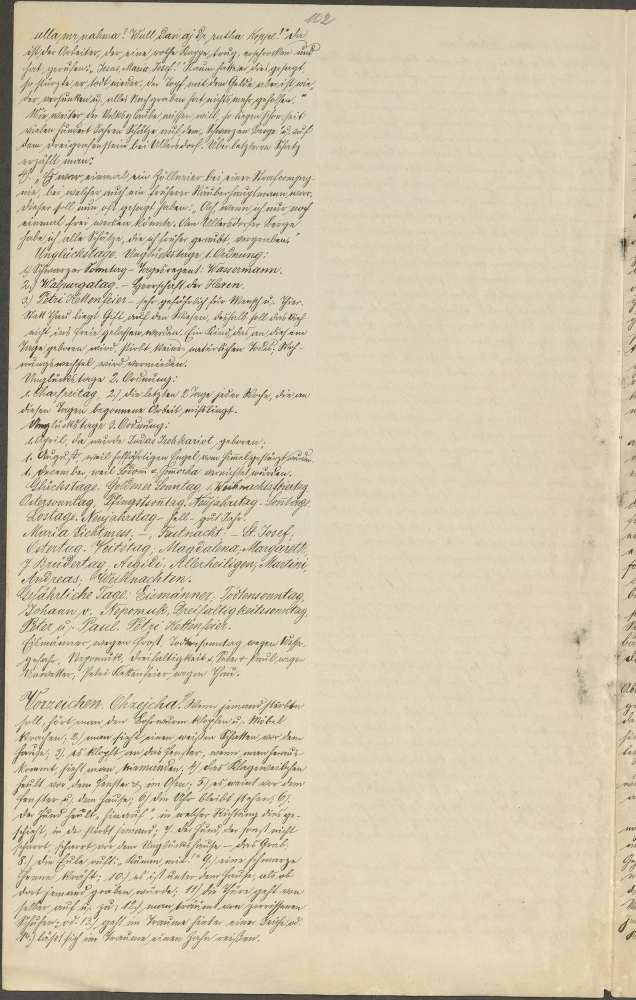 102
ulla mr nahma! Wull dan aj de rutha Koppe!" Da
ist der Arbeiter, der eine rothe Kappe trug, erschrocken und
hat gerufen: "Jesus, Maria, Josef!" Kaum hatte er dies gesagt,
so stürzte er todt nieder. Der Topf mit dem Gelde aber ist wie-
der versunken u. alles Nachgraben hat nichts mehr geholfen."
Wie weiter der Volksglaube wissen will, so liegen schon seit
vielen hundert Jahren Schätze auf dem "Schwarzen Berge" u. auf
dem Dreigrafenstein bei Ullersdorf. Über letzteren Schatz
erzählt man:
4) "Es war einmal ein Füllnerier bei einer Strafcompag-
nie, bei welcher auch ein früherer Räuberhauptmann war.
Dieser soll nun oft gesagt haben: "Ach, wenn ich nur noch
einmal frei werden könnte. Am Ullersdorfer Berge
habe ich alle Schätze, die ich früher geraubt, vergraben."
Unglückstage. Unglückstage 1. Ordnung:
1. Schwarzer Sonntag – Tagesregent: Wassermann.
2.) Walpurgatag. – Herrschaft der Hexen.
3.) Petri Kettenfeier – sehr gefährlich für Mensch u. Thier.
Statt Thau liegt Gift auf den Wiesen, deshalb soll das Vieh
nicht ins Freie gelassen werden. Ein Kind, das an diesem
Tage geboren wird, stirbt keines natürlichen Todes; Woh-
nungswechsel wird vermieden.
Unglückstage 2. Ordnung:
1. Charfreitag, 2.) die letzten 2 Tage jeder Woche, die an
diesen Tagen begonnene Arbeit mißlingt.
Unglückstage 3. Ordnung:
1. April, da wurde Judas Ischkariot geboren.
1. August, weil die abtrünnigen Engel vom Himmel gestürzt wurden.
1. Dezember, weil Sodom u. Gomorha vernichtet wurden.
Glückstage. Goldener Sonntag, 1. Weihnachtsfeiertag
Ostersonntag, Pfingstsonntag, Neujahrstag. – Sonntage.
Lostage. Neujahrstag – hell – gut Jahr.
Maria Lichtmess. –, Fastnacht. – St. Josef,
Ostertag. – Veitstag, Magdalena, Margareth,
7 Brüdertag, Aegidi, Allerheiligen, Martini,
Andreas, Weihnachten.
Gefährliche Tage: Eismänner, Todtensonntag,
Johann v. Nepomuk, Dreifaltigkeitssonntag
Peter u. Paul. Petri Kettenfeier.
Eismänner, wegen Frost, Todtensonntag wegen Wasser-
gefahr, Nepomuk, Dreifaltigkeit u. Peter u. Paul, wegen
Unwetter, Petri Kettenfeier, wegen Thau.
Vorzeichen. Ohzejcha. Wenn jemand sterben
soll, hört man den Bohrwurm klopfen u. Möbel
krachen; 2.) man sieht einen weißen Schatten vor dem
Hause; 3.) es klopft an das Fenster, wenn man heraus-
kommt, sieht man niemanden; 4.) das Klageweibchen
heult vor dem Fenster u. im Ofen; 5.) es weint vor dem
Fenster u. dem Hause; 6.) die Uhr bleibt stehen;
der Hund heult "hinaus", in welcher Richtung dies ge-
schieht, in der stirbt jemand; 7. der Hund, der sonst nicht
scharrt, scharrt vor dem Unglückshause – das Grab.
8.) Die Eule ruft: "Kumm mit!" 9.) eine schwarze
Henne kräht; 10.) es ist unter dem Hause, als ob
dort jemand graben würde; 11.) die Thüre geht von
selber auf u. zu; 12.) man träumt von zerrissenen
Schuhen; od. 13.) geht im Traume hinter einer Leiche, od.
14.) läßt sich im Traume einen Zahn reißen.